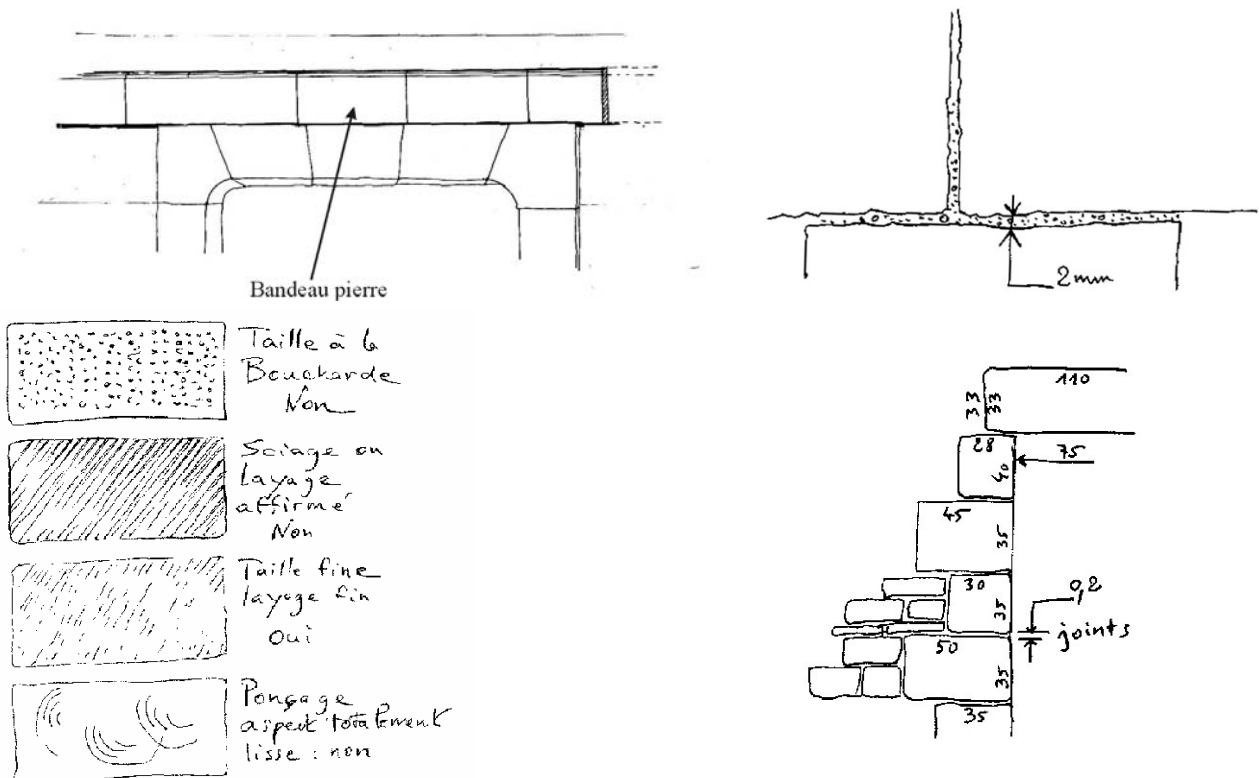 Bandeau pierre
2mm
Taille à la
Boucharde
Non
Sciage ou
layage
affirmé
Non
Taille fine
layage fin
oui
Ponçage
aspect totalement
lisse : non
110
33
33
28
75
40
45
35
30
0,2
35
joints
50
35
35